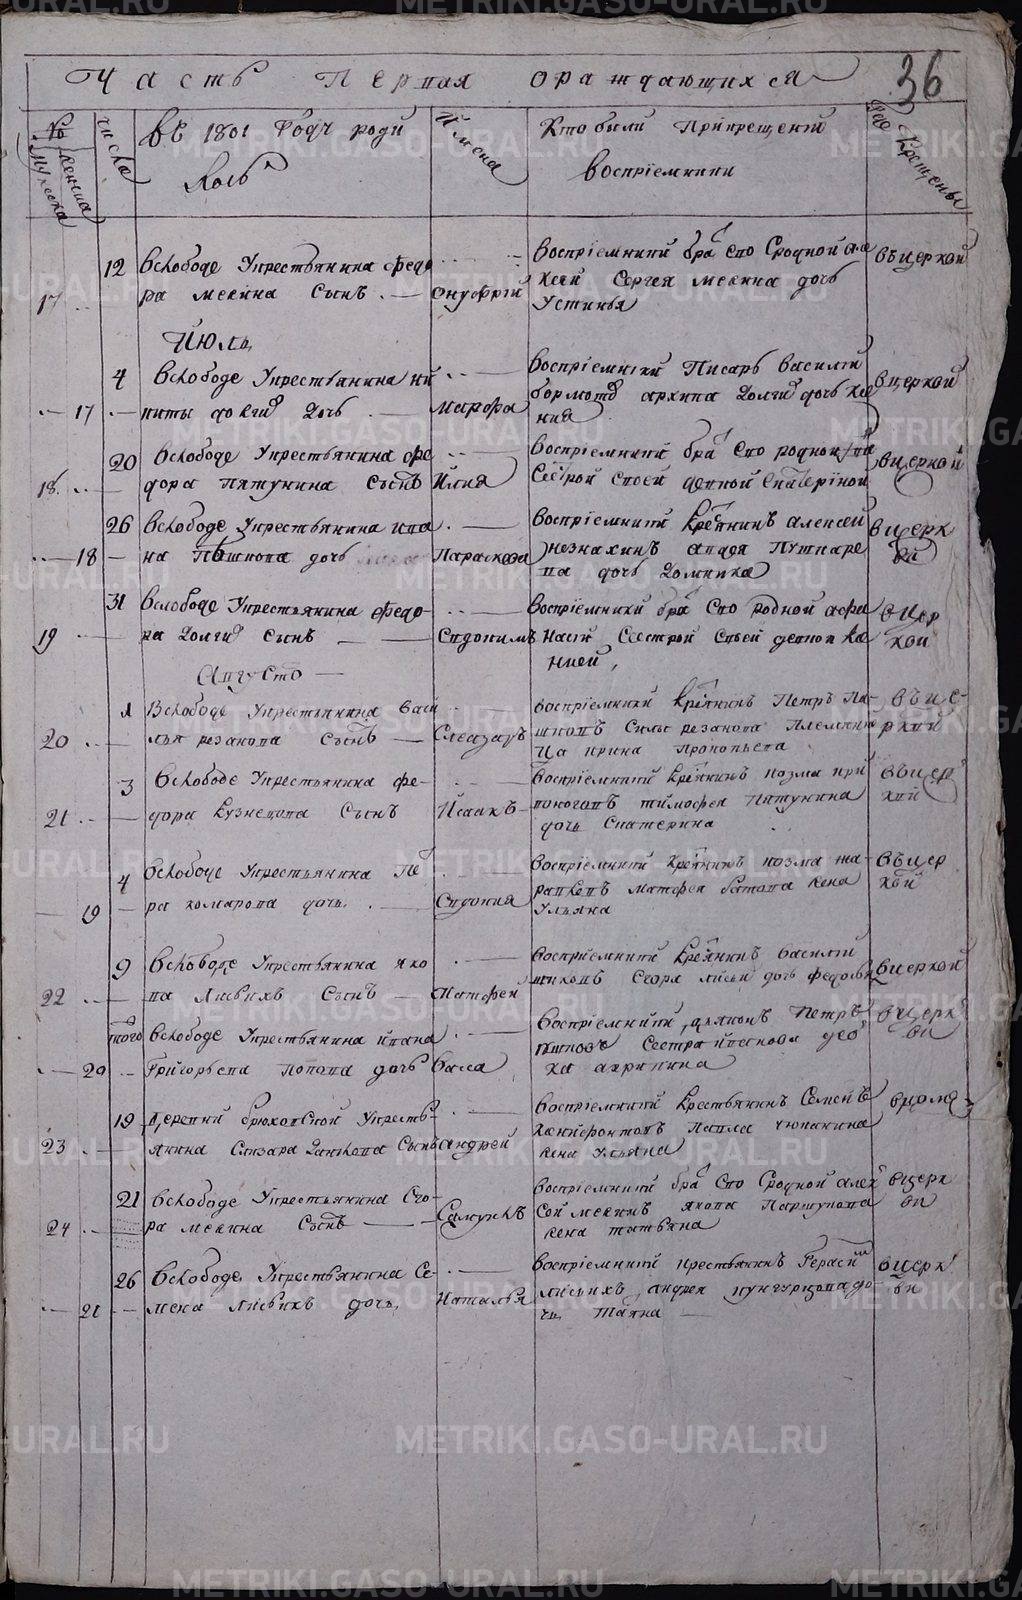 Часть Первая ораждающихся
36
№
мужеска
женска
числа
въ 1801 Году роди
лось
Имена
Кто были Прикрещенiи
воспрiемники
Где Крещены
12 вслободе Укрестьянина Федо
ра мекина Сынъ Онуфрiй
17
воспрiемники бра Ево Сродной Але
ксей Сергея мекина дочь
Устинья
въцерквй
Июль
4 вслободе Укрестьянина Ни
киты долгих Дочь Марфа
17
воспрiемники Писарь Василiй
архипа Долгих дочь Ксе
ния
вцерквй
20 вслободе Укрестьянина Фе
дора Пятунина Сынъ Илия
18
воспрiемники бра Ево родной
Сестрой Своей девкой Екатерiной
вцерквй
26 вслободе Укрестьянина Ива
на Пешкова дочь Параскова
18
воспрiемники Крестьянинъ Алексей
незнахинъ
дочь Домника
вцерк
ви
31 вслободе Укрестьянина Федо-
ра Долгих сынъ Евдокимъ
19
воспрiемники бра Ево родной Афа
насей Сестрой Своей девкой Ксе
нией
вцер
кви
Августъ
1 вслободе Укрестьянина Васи
лья резанова Сынъ Елеазаръ
20
воспрiемники Крестьянинъ Петръ Па-
шковъ Силы резанова Племянни
ца ирина Прокопьева
въце-
рквй
3 вслободе Укрестьянина Фе-
дора Кузнецова Сынъ Исаакъ
21
воспрiемники Крестьянинъ козма кри
воноговъ тимофея Пятунина
дочь Екатерина
въцер
квй
4 вслободе Укрестьянина Пе
ра комарова дочь Евдокия
19
воспрiемники Крестьянинъ козма ка-
раваевъ матфея батова жена
Ульяна
въцер
квй
9 вслободе Укрестьянина Яко
ва Лисьихъ Сынъ Матфей
22
воспрiемники Крестьянинъ Василiй
Егора лисьих дочь
вцерквй
того вслободе Укрестьянина Ивана
Григорьева Попова дочь Васса
20
воспрiемники дьяконъ Петръ
Пешковъ Сестра
акрипина
вцерк
ви
19 деревни брюховской Укресть-
янина Елизара Данкова Сынъ Андрей
23
воспрiемники Крестьянинъ Семенъ
Ксенофонтовъ Павла чювакина
жена Ульяна
вдоме
21 вслободе Укрестьянина Его-
ра мекина Сынъ Самуилъ
24
воспрiемники бра Ево Сродной алек
сей мекинъ якова Паршукова
жена татьяна
вцерк
ви
26 вслободе Укрестьянина Се-
мена Лисьихъ дочь Наталья
21
воспрiемники крестьянинъ Герасим
лисьихъ андрея кунгурцова до-
чь Татьяна
вцерк
ви